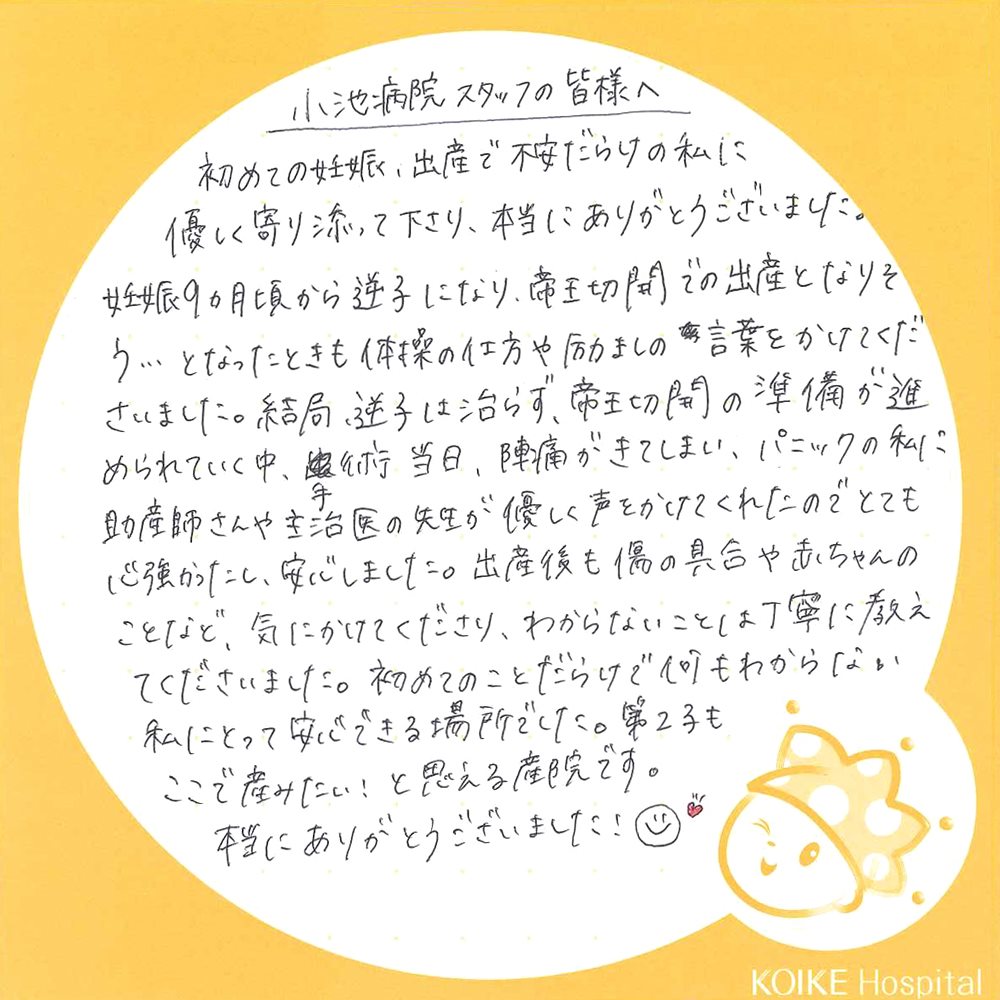 小池病院スタッフの皆様へ
初めての妊娠、出産で不安だらけの私に
優しく寄り添って下さり、本当にありがとうございました。
妊娠9カ月頃から逆子になり、帝王切開での出産となりそ
う…となったときも体操の仕方や励ましの言葉をかけてくだ
さいました。結局、逆子は治らず、帝王切開の準備が進
められていく中、手術当日、陣痛がきてしまい、パニックの私に
助産師さんや主治医の先生が優しく声をかけてくれたのでとても
心強かったし、安心しました。出産後も傷の具合や赤ちゃんの
ことなど、気にかけてくださり、わからないことは丁寧に教え
てくださいました。初めてのことだらけで何もわからない
私にとって安心できる場所でした。第2子も
ここで産みたい！と思える産院です。
本当にありがとうございました！
KOIKE Hospital